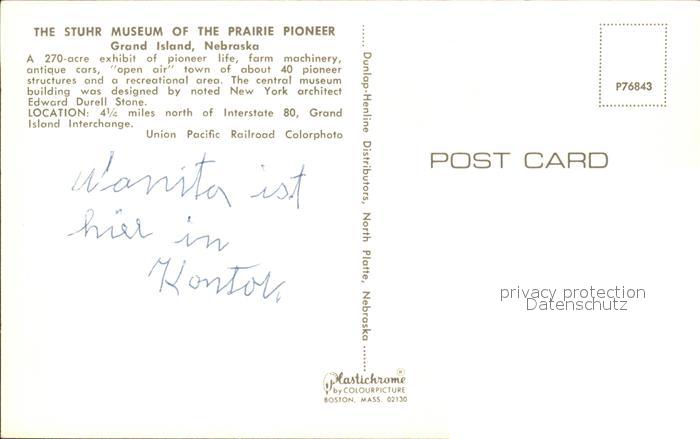 THE STUHR MUSEUM OF THE PRAIRIE PIONEER
Grand Island, Nebraska
A 270-acre exhibit of pioneer life, farm machinery,
antique cars, "open air" town of about 40 pioneer
structures and a recreational area. The central museum
building was designed by noted New York architect
Edward Durell Stone.
LOCATION: 4½ miles north of Interstate 80, Grand
Island Interchange.
Union Pacific Railroad Colorphoto
Wanita ist
hier in
Kontor.
Dunlap-Henline Distributors, North Platte, Nebraska
Plastichrome®
by COLOURPICTURE
BOSTON, MASS. 02130
P76843
POST CARD
privacy protection
Datenschutz